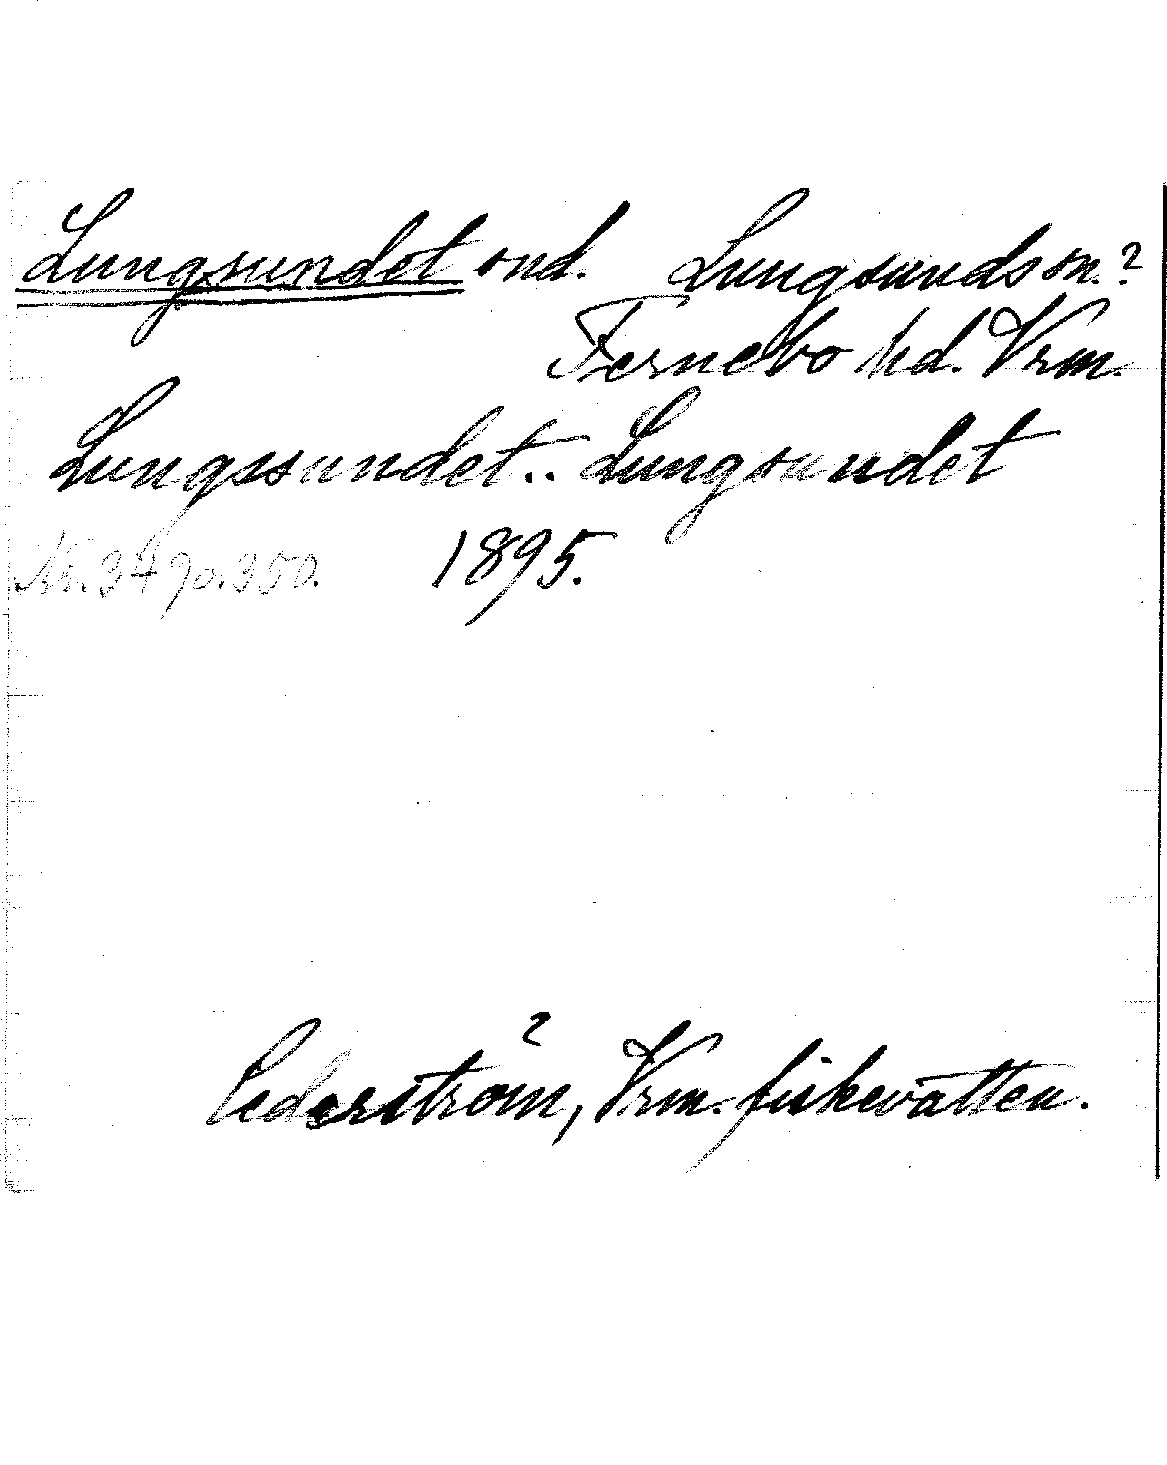 Lungsundet sund. Lungsunds sn.?
Fernebo hd. Vrm.
Lungssundet.. Lungsundet
Nr. 3490.350. 1895.
Cederström, Vrm. fiskevatten.